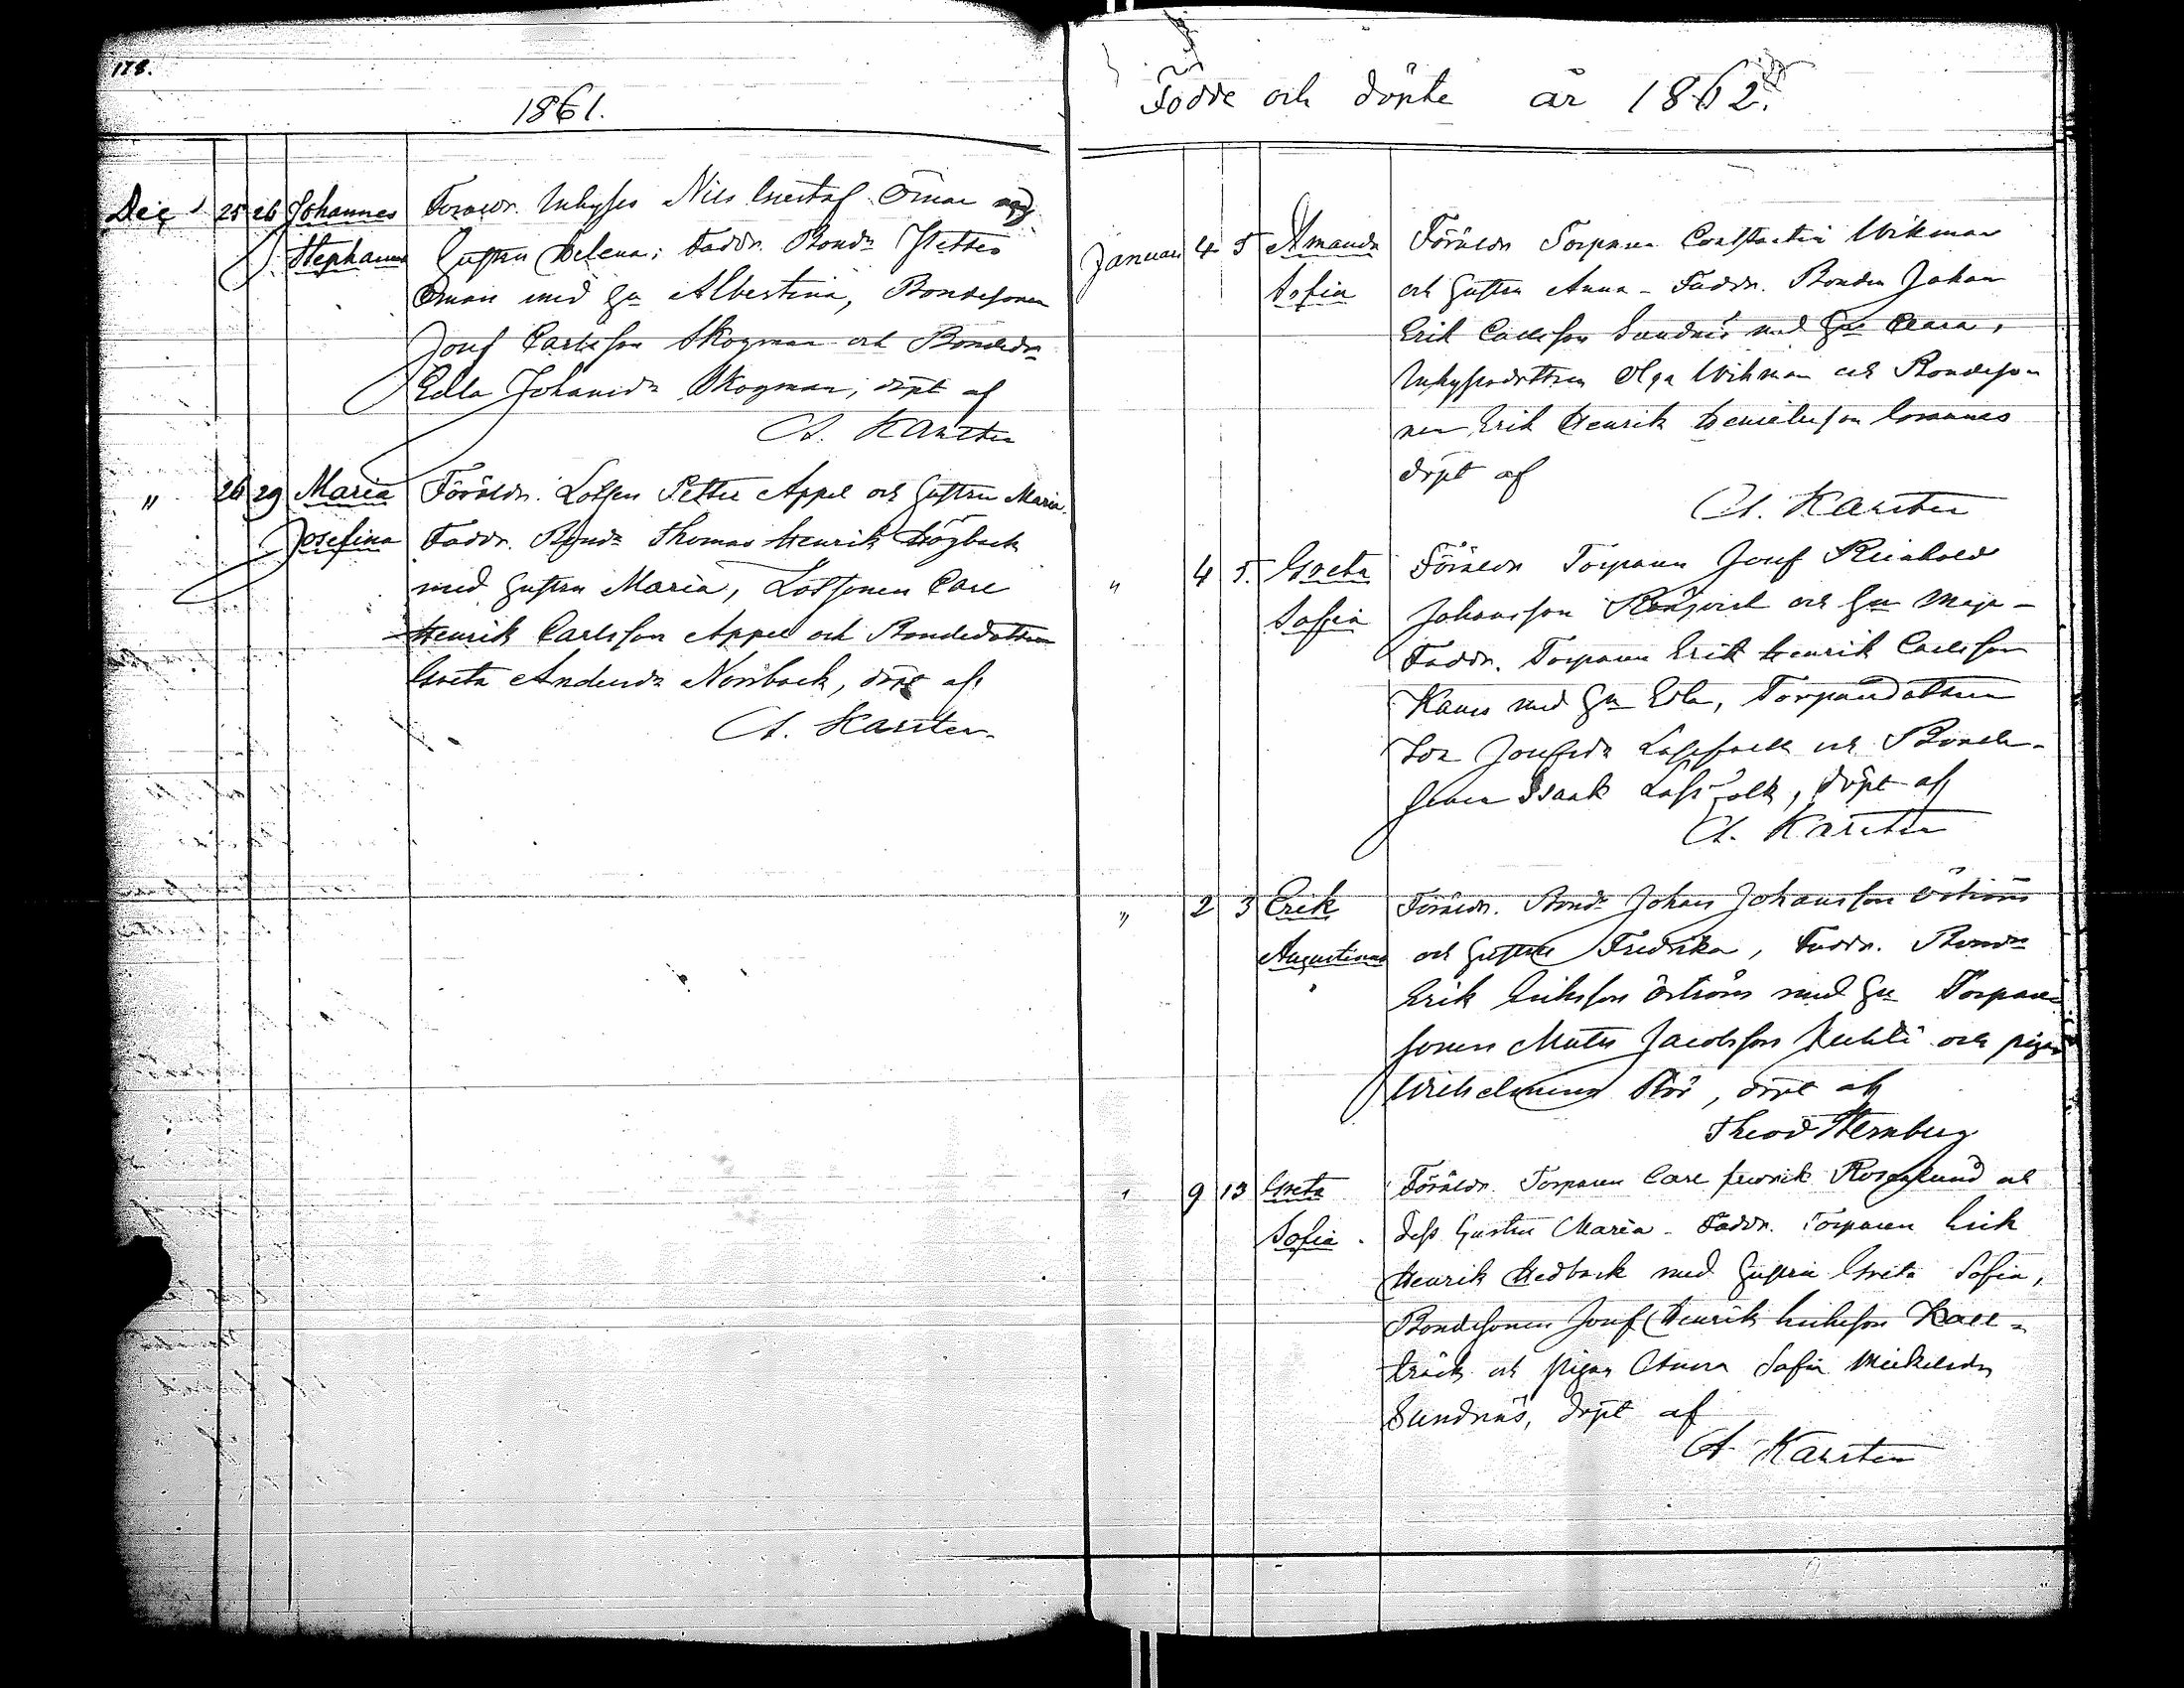 178.
1861.
Dec 25 26 Johannes Föräldr. Inhyses Nils Gustaf Öman och
Stephanus hustru Helena; Faddr. Bondn Petter
Öman med hu Albertina, Bondesonen
Josef Carlsson Skogman och Bondedr
Edla Johansdr Skogman, döpt af
A. Karsten
" 26 29 Maria Föräldr. Lotsen Petter Appel och hustru Maria.
Josefina Faddr. Bondn Thomas Henrik Högback
med hustru Maria, Lotssonen Carl
Henrik Carlsson Appel och Bondedottren
Greta Andersdr Norrback, döpt af
A. Karsten
Födde och döpte år 1862.
Januari 4 5 Amanda Föräldr Torparen Constantin Wikman
Sofia och hustru Anna - Faddr. Bonden Johan
Erik Carlsson Sundnäs med hu Clara,
Inhysesdottren Olga Wikman och Bondeso
nen Erik Henrik Henriksson
döpt af
A. Karsten
" 4 5. Greta Föräldr Torparen Josef Reinhold
Sofia Johansson och hu Maja -
Faddr. Torparen Erik Henrik Carlsson
med hu Edla, Torparedottren
Josefsdr Lassfolk och Bonde-
sonen Isaak Lassfolk, döpt af
A. Karsten
" 2 3 Erik Föräldr. Bondn Johan Johansson Öström
Augustinus och hustru Fredrika, Faddr. Bondn
Erik Eriksson Öström med hu Torpare
sonen Mats Jacobsson och pigan
Wilhelmina , döpt af
Theod Sternberg
" 9 13 Greta Föräldr. Torparen Carl Fredrik Rosenlund och
Sofia. dess hustru Maria - Faddr. Torparen Erik
Henrik Hedback med hustru Greta Sofia,
Bondesonen Josef Henrik Eriksson Kall-
träsk och pigan Anna Sofia Mickelsdr
Sundnäs, döpt af
A. Karsten